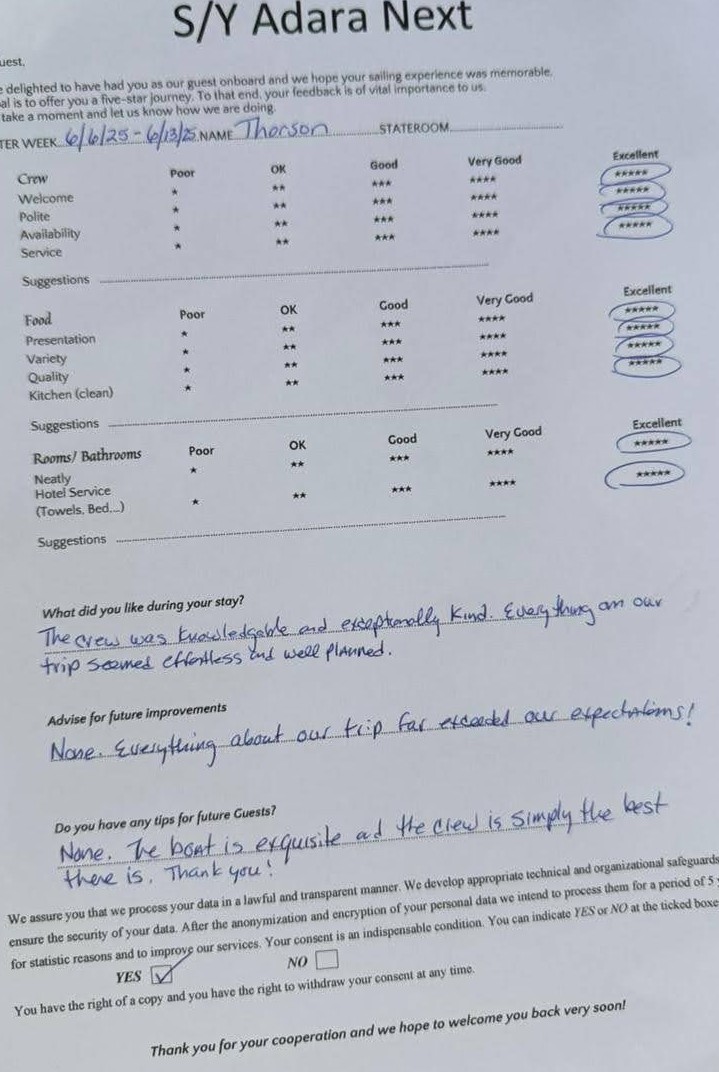 S/Y Adara Next
uest,
e delighted to have had you as our guest onboard and we hope your sailing experience was memorable.
al is to offer you a five-star journey. To that end, your feedback is of vital importance to us.
take a moment and let us know how we are doing.
TER WEEK 6/6/25 - 6/13/25 NAME Thorson STATEROOM
Crew Poor OK Good Very Good Excellent
Welcome * ** *** **** *****
Polite * ** *** **** *****
Availability * ** *** **** *****
Service * ** *** **** *****
Suggestions
Food Poor OK Good Very Good Excellent
Presentation * ** *** **** *****
Variety * ** *** **** *****
Quality * ** *** **** *****
Kitchen (clean) * ** *** **** *****
Suggestions
Rooms/ Bathrooms Poor OK Good Very Good Excellent
Neatly * ** *** **** *****
Hotel Service
(Towels, Bed...) * ** *** **** *****
Suggestions
What did you like during your stay?
The crew was knowledgable and exceptionally kind. Everything on our
trip seemed effortless and well planned.
Advise for future improvements
None. Everything about our trip far exceeded our expectations!
Do you have any tips for future Guests?
None. The boat is exquisite ad the crew is simply the best
there is. Thank you!
We assure you that we process your data in a lawful and transparent manner. We develop appropriate technical and organizational safeguards
ensure the security of your data. After the anonymization and encryption of your personal data we intend to process them for a period of 5
for statistic reasons and to improve our services. Your consent is an indispensable condition. You can indicate YES or NO at the ticked boxe
YES ☑ NO ☐
You have the right of a copy and you have the right to withdraw your consent at any time.
Thank you for your cooperation and we hope to welcome you back very soon!